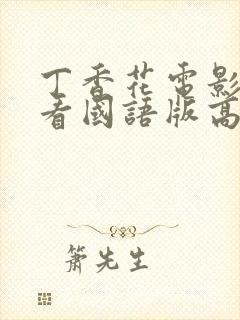 丁香花電影
看國語版高
簫先生